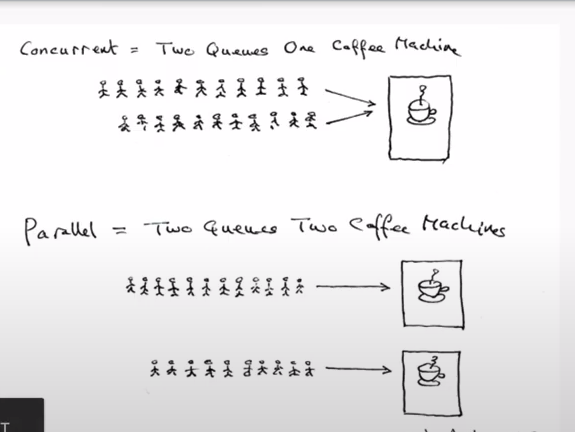 Concurrent = Two Queues One Coffee Machine
Parallel = Two Queues Two Coffee Machines
T